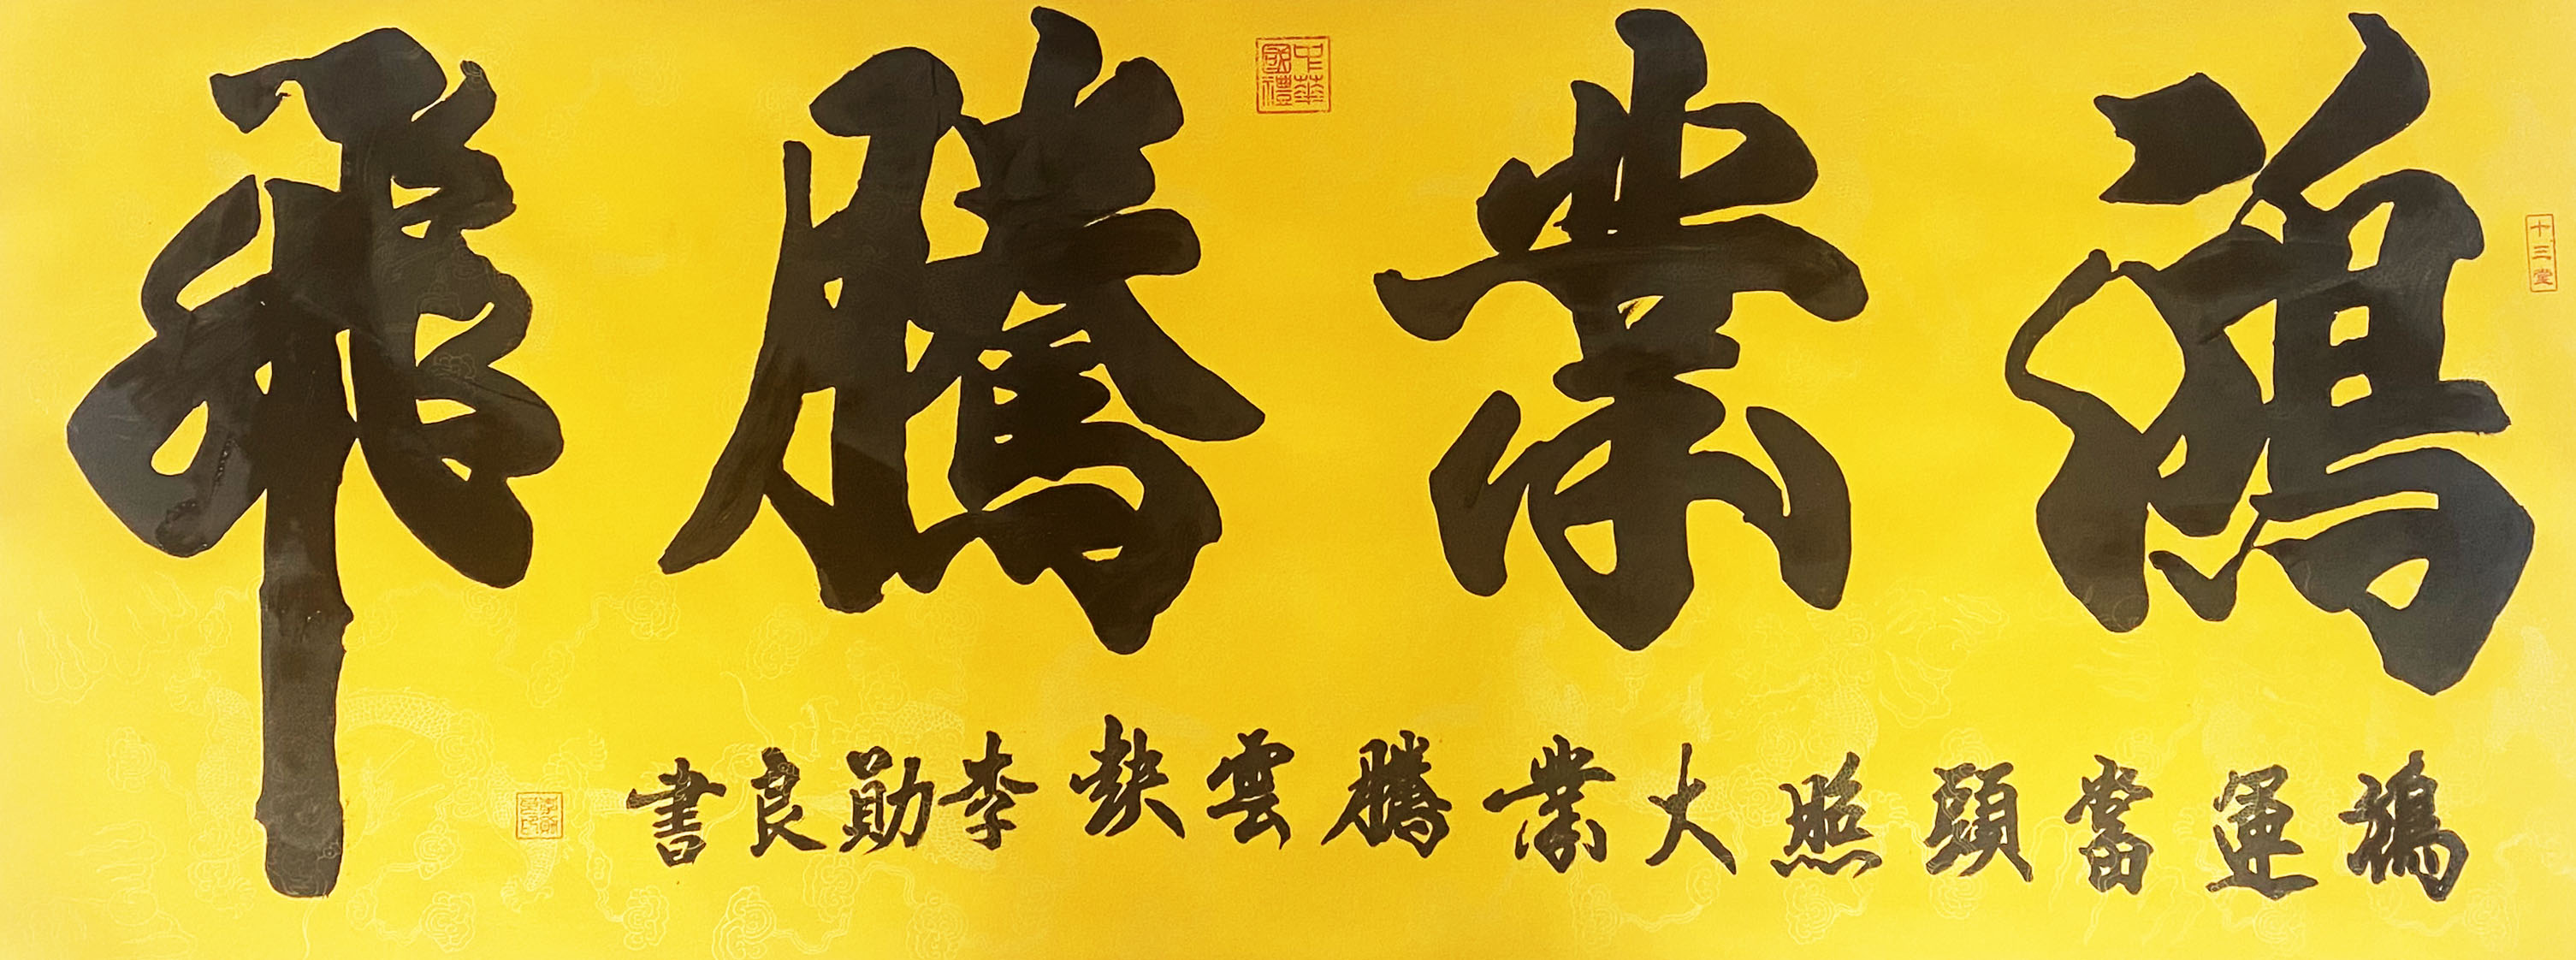 鴻業騰飛
中華國禮
十三堂
鴻運當頭照大業騰雲李勛良書